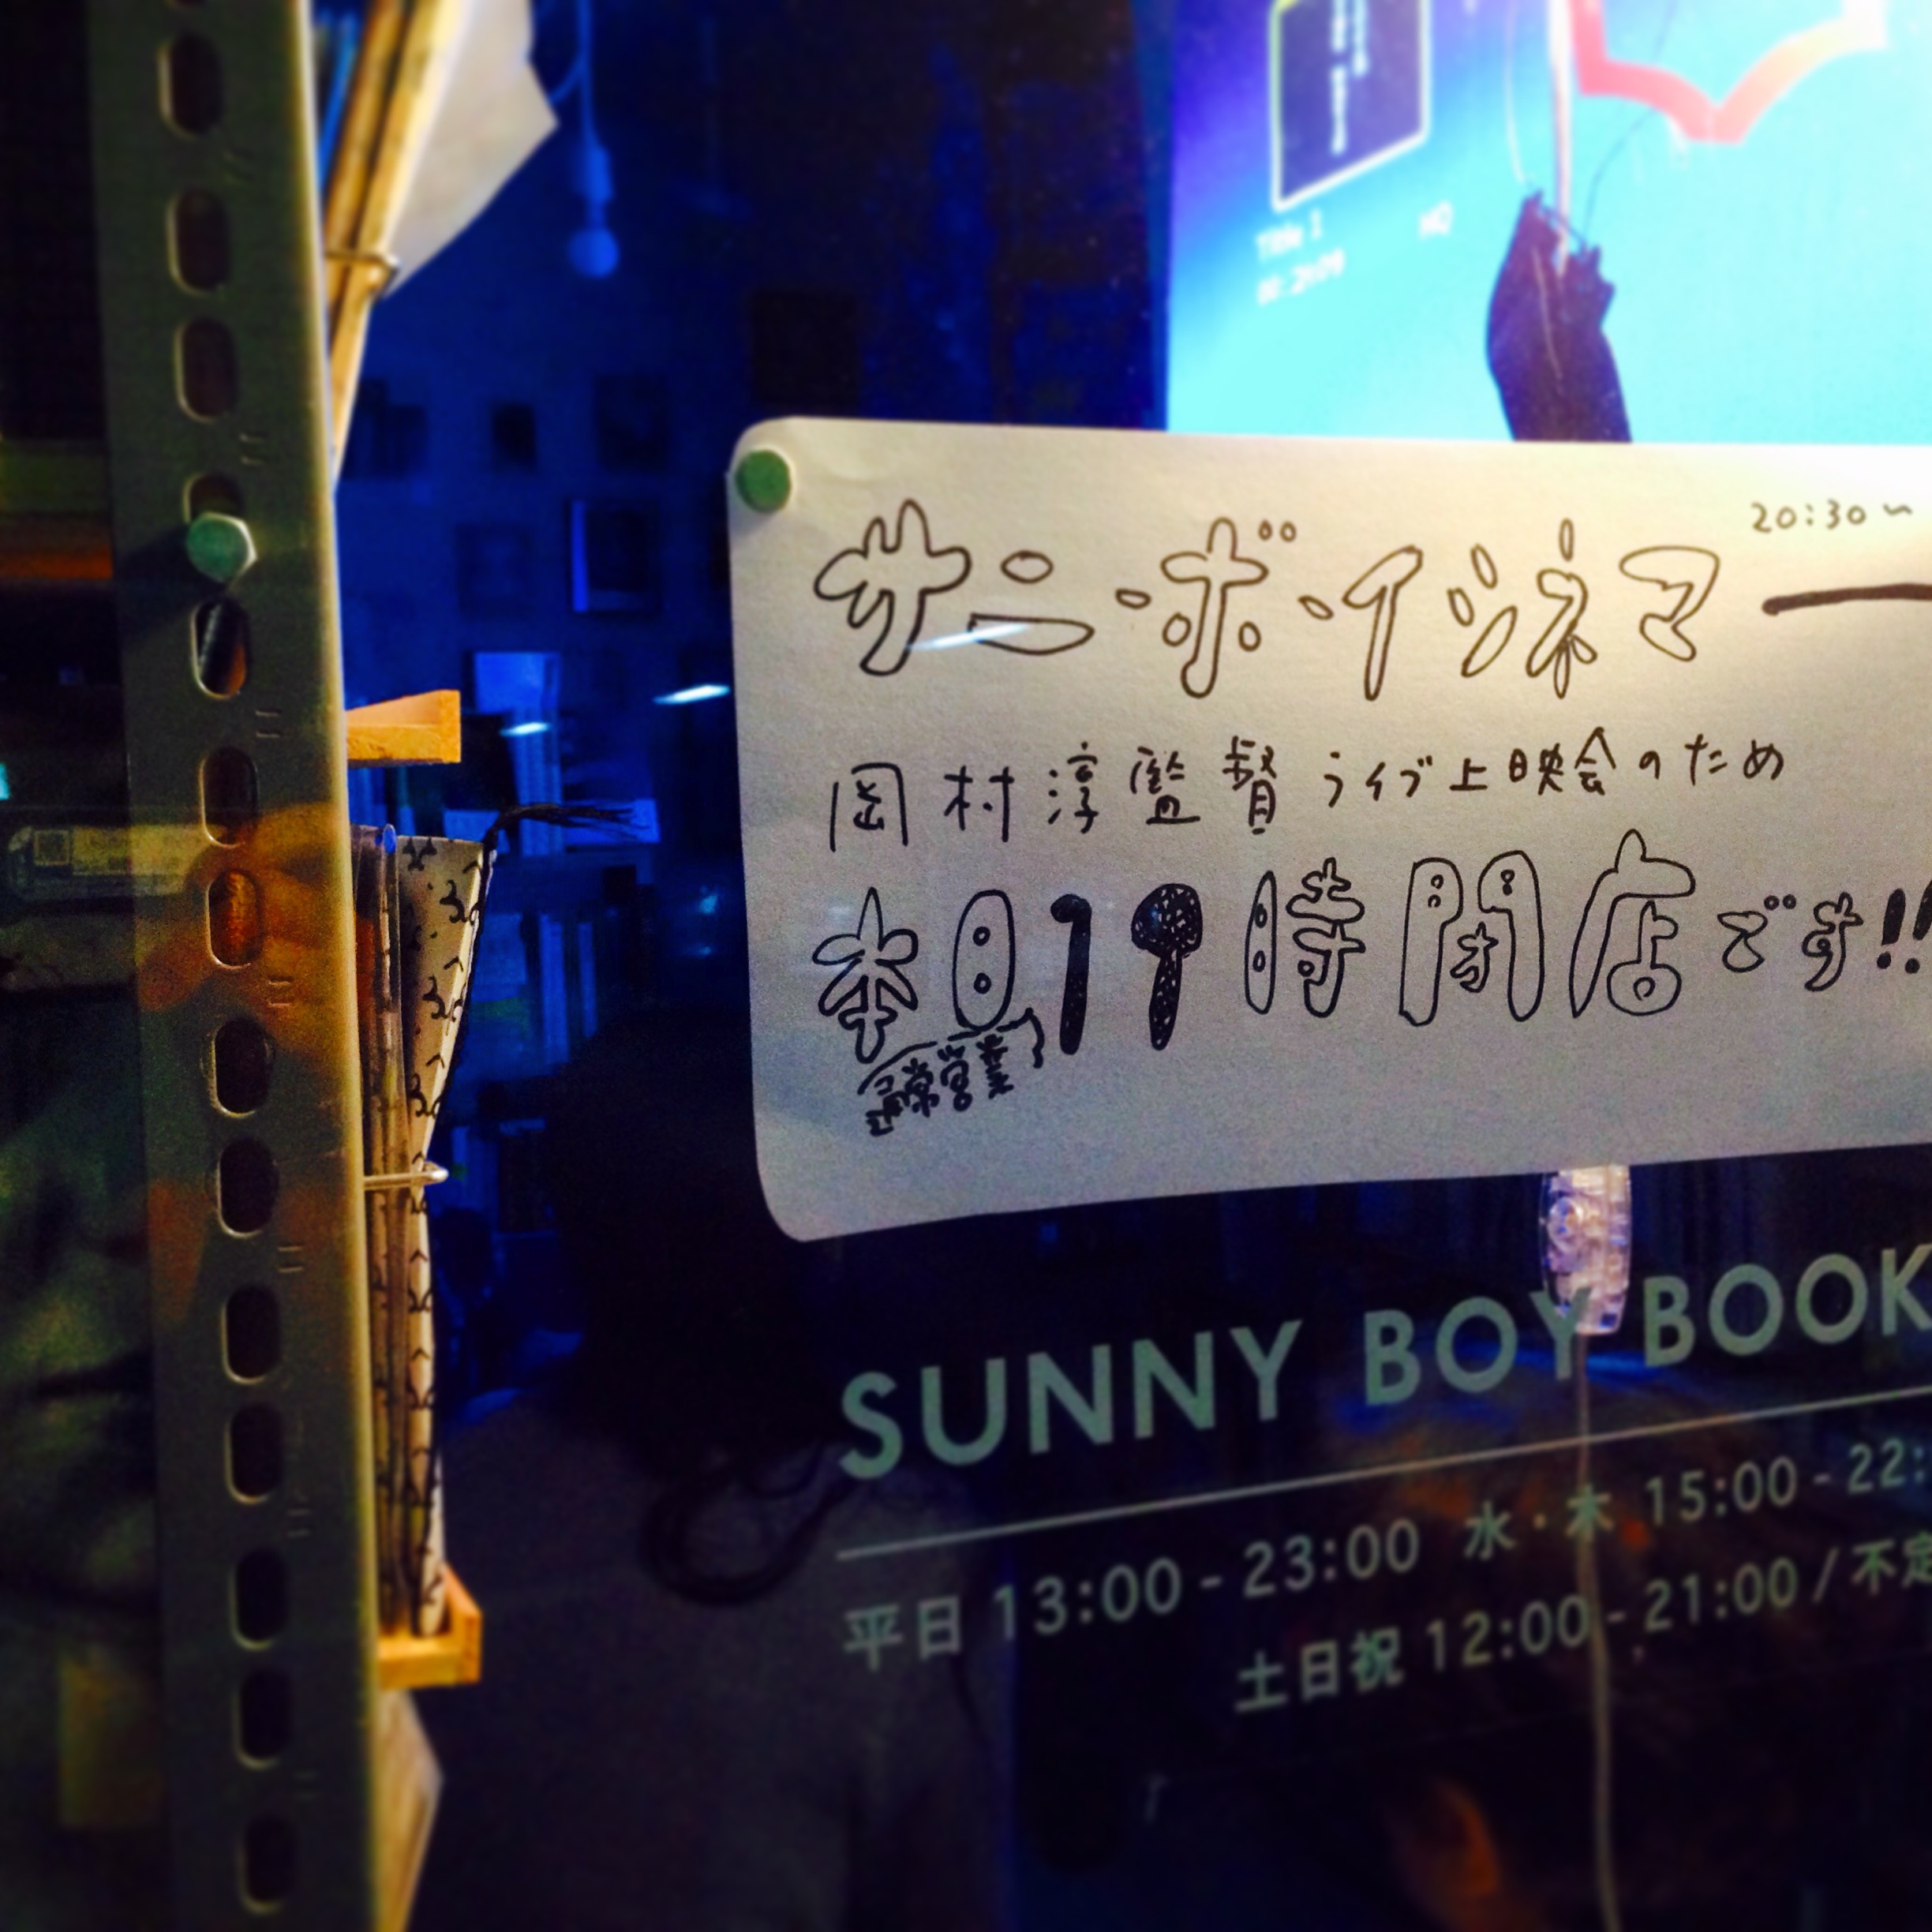 Title 1
HQ
20:30～
サニーボーイシネマ
岡村淳監督ライブ上映会のため
本日19時閉店です!!
通常営業
SUNNY BOY BOOK
平日 13:00 - 23:00 水・木 15:00 - 22:
土日祝 12:00 - 21:00 / 不定